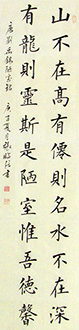 山不在高有僊則名水不在深
有龍則靈斯是陋室惟吾德馨
唐劉禹錫陋室銘